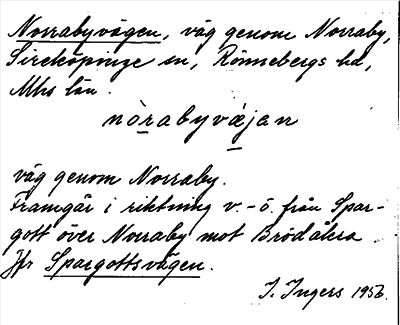 Norrabyvägen, väg genom Norraby,
Sireköpinge sn, Rönnebergs hd,
Mhs län.
nòrabyvæ̀jan
väg genom Norraby.
Framgår i riktning v.-ö. från Spar-
gott över Norraby mot Brödåkra
Jfr Spargottsvägen.
I. Ingers 1956.